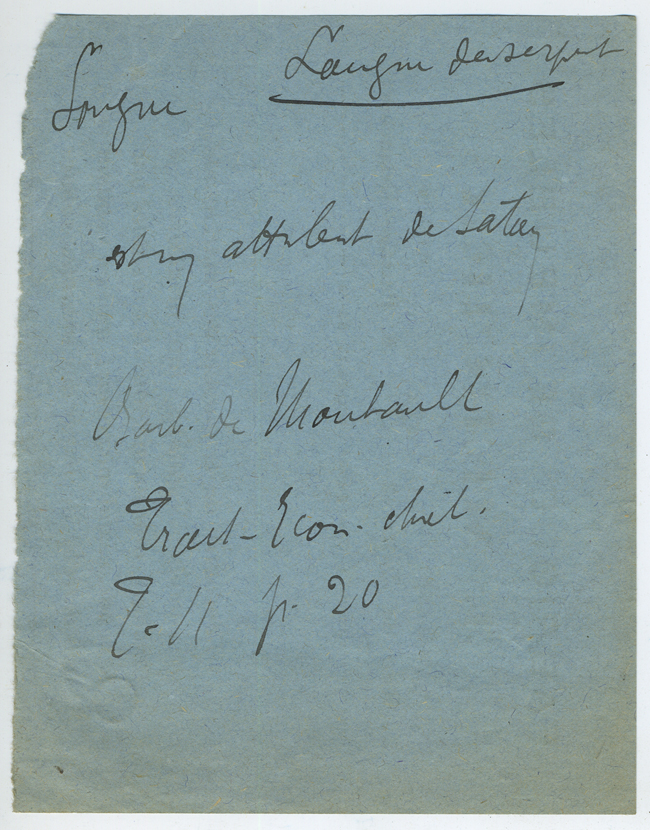 Langue
Langue de serpent
est un attribut de Satan
Barb. de Montault
Trait- Icon- chret.
T- II p. 20